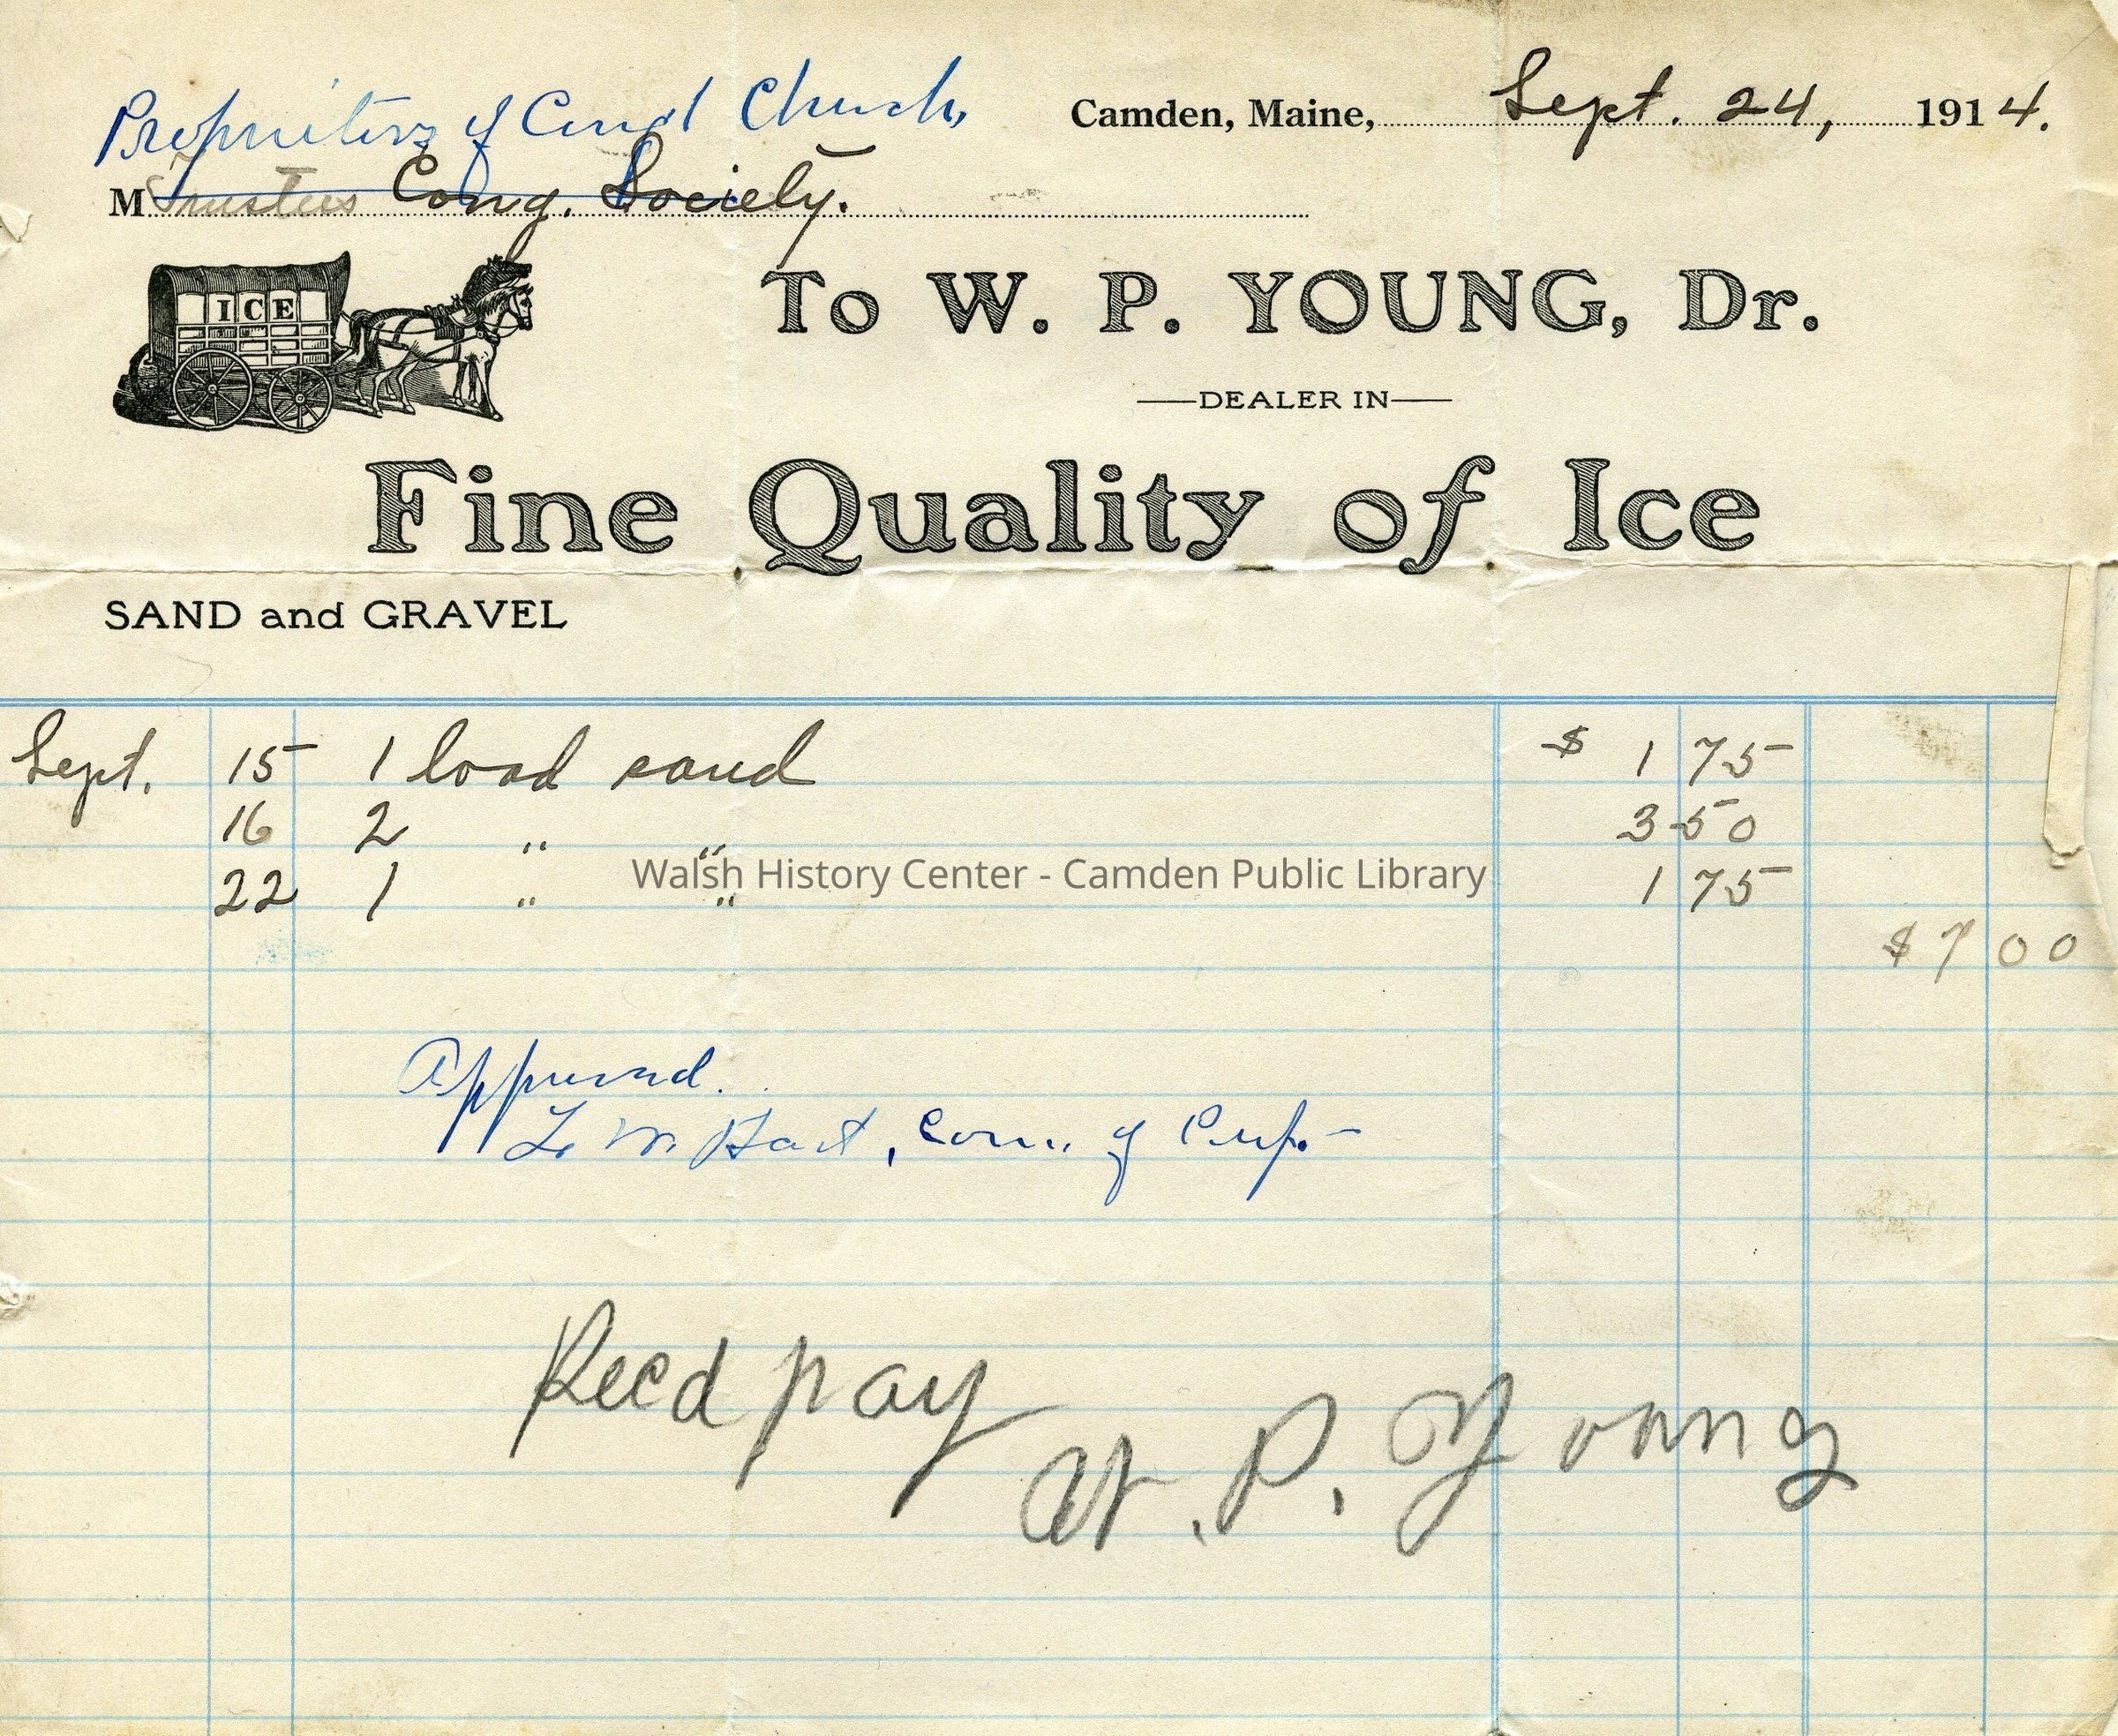 Proprietors of Cong'l Church,
Camden, Maine, Sept. 24, 1914.
M Trustees Cong. Society.
ICE
To W. P. YOUNG, Dr.
DEALER IN
Fine Quality of Ice
SAND and GRAVEL
Sept. 15 1 load sand $ 1 75
16 2 " " 3 50
22 1 " " 1 75
Walsh History Center - Camden Public Library
$7 00
Approved.
Hart, Com. of Prop.
Recd pay
W. P. Young